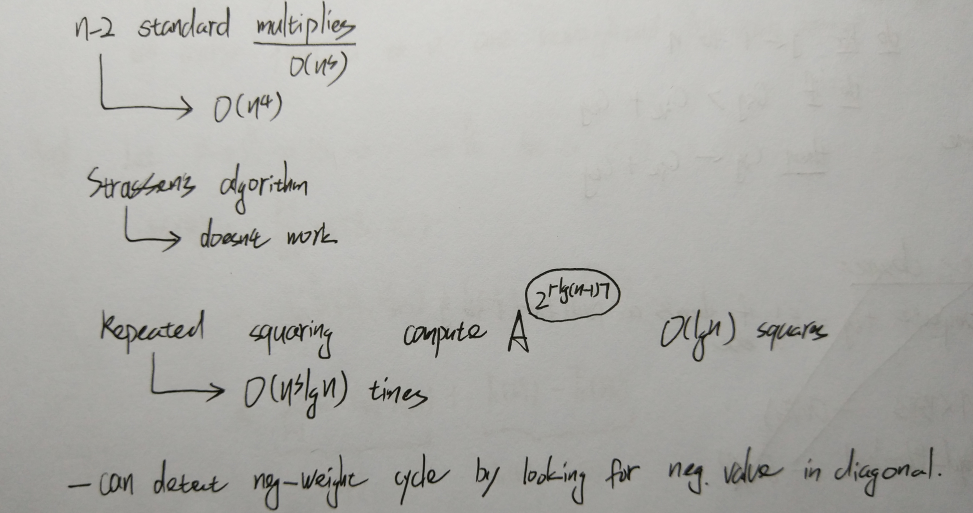 n-2 standard multiplies
O(n³)
O(n⁴)
Strassen's algorithm
doesn't work
Repeated squaring compute A^2^⌈lg(n-1)⌉ O(lgn) squares
O(n³lgn) times
- can detect neg-weight cycle by looking for neg. value in diagonal.